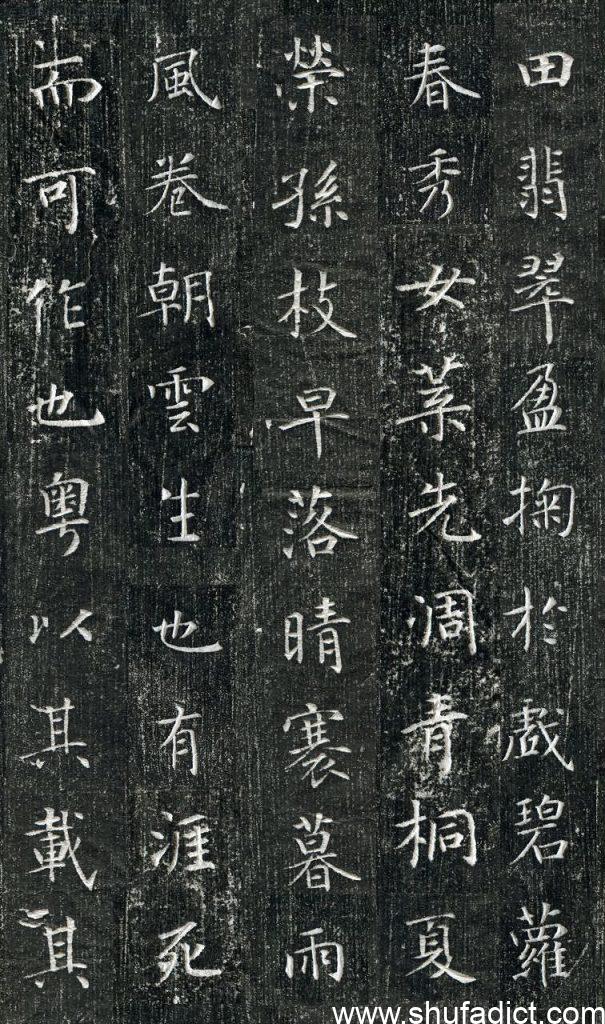 田翡翠盈掬於戲碧蘿
春秀女葉先凋青桐夏
榮孫枝早落晴褰暮雨
風卷朝雲生也有涯死
而可作也粤以其載二其
www.shufadict.com